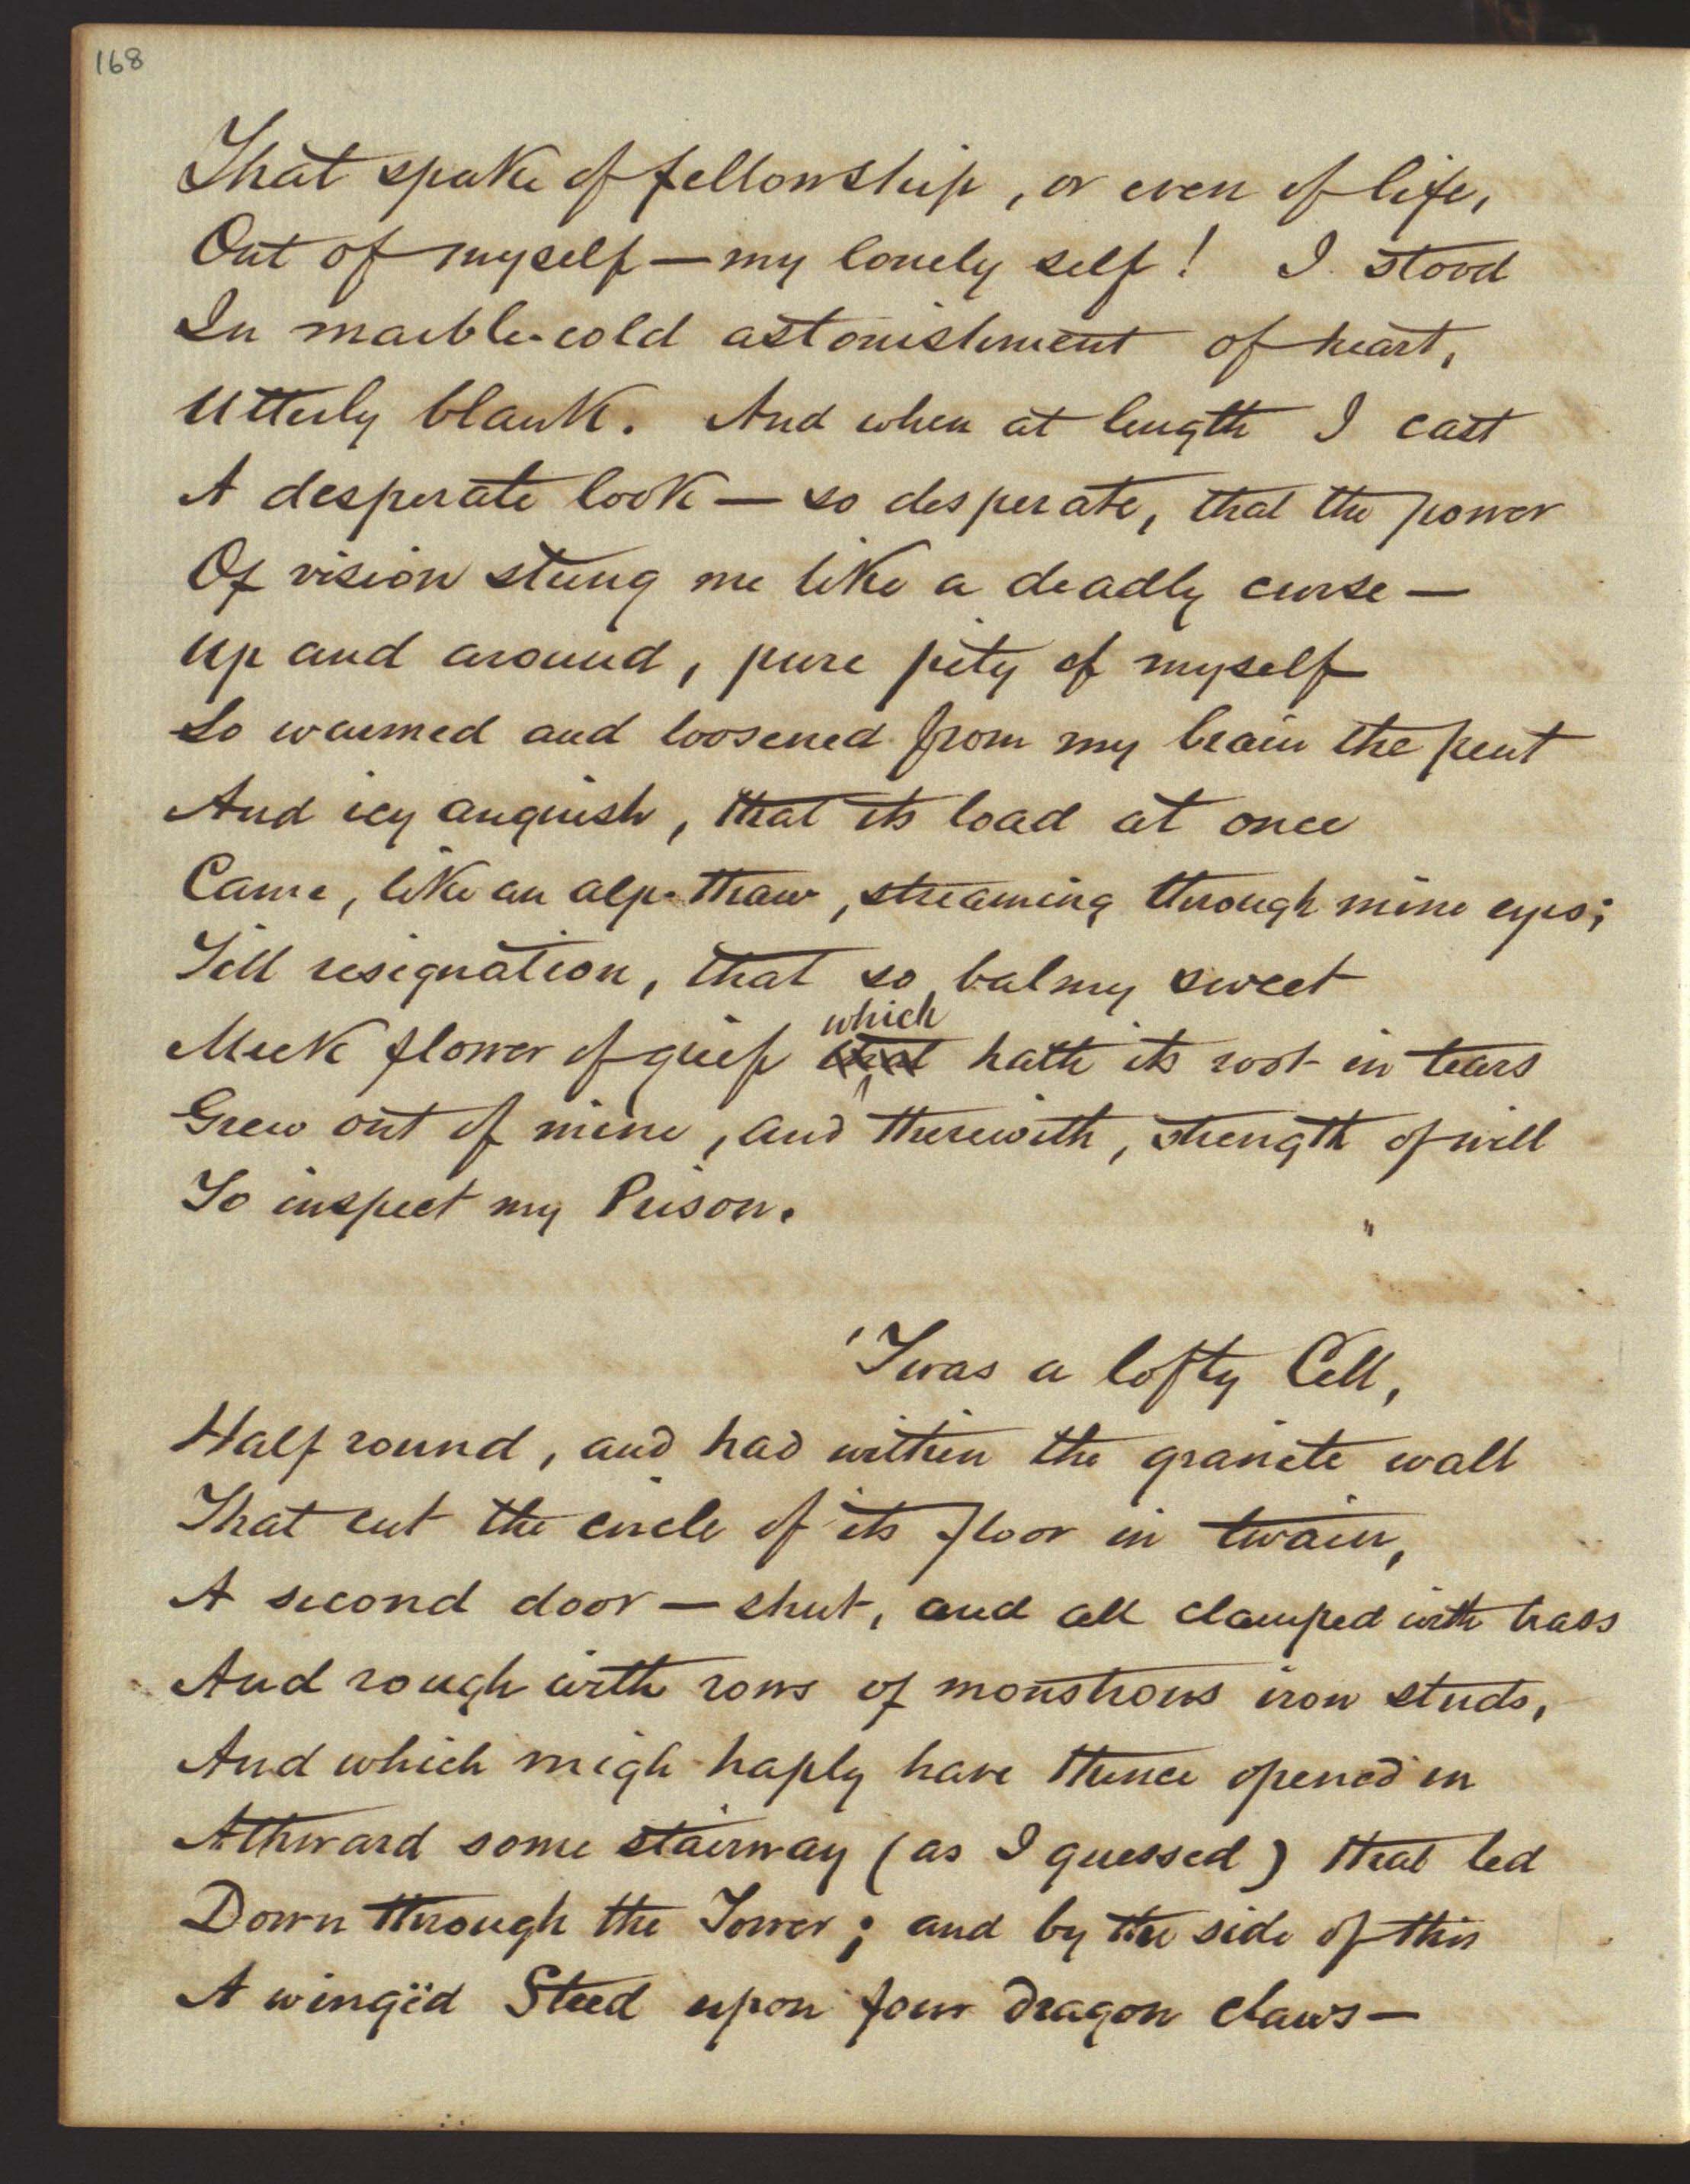 168
That spoke of fellowship, or even of life,
Out of myself — my lonely self! I stood
In marble-cold astonishment of heart,
Utterly blank. And when at length I cast
A desperate look — so desperate, that the power
Of vision stung me like a deadly curse —
Up and around, pure pity of myself
So warmed and loosened from my brain the pent
And icy anguish, that its load at once
Came, like an alp-thaw, streaming through mine eyes;
Till resignation, that so balmy sweet
which
Meek flower of grief that hath its root in tears
Grew out of mine, and therewith, strength of will
To inspect my Prison.
'Twas a lofty Cell,
Half round, and had within the granite wall
That cut the circle of its floor in twain,
A second door — shut, and all clamped with brass
And rough with rows of monstrous iron studs,
And which migh haply have thence opened in
Athward some stairway (as I guessed) that led
Down through the Tower; and by the side of this
A wingëd Steed upon four dragon claws —